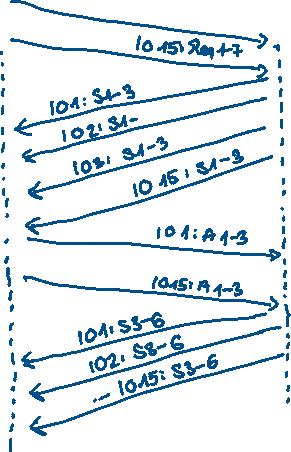 1015: Req 1-7
101: S1-3
102: S1-
103: S1-3
1015: S1-3
101: A1-3
1015: A1-3
101: S3-6
102: S3-6
... 1015: S3-6